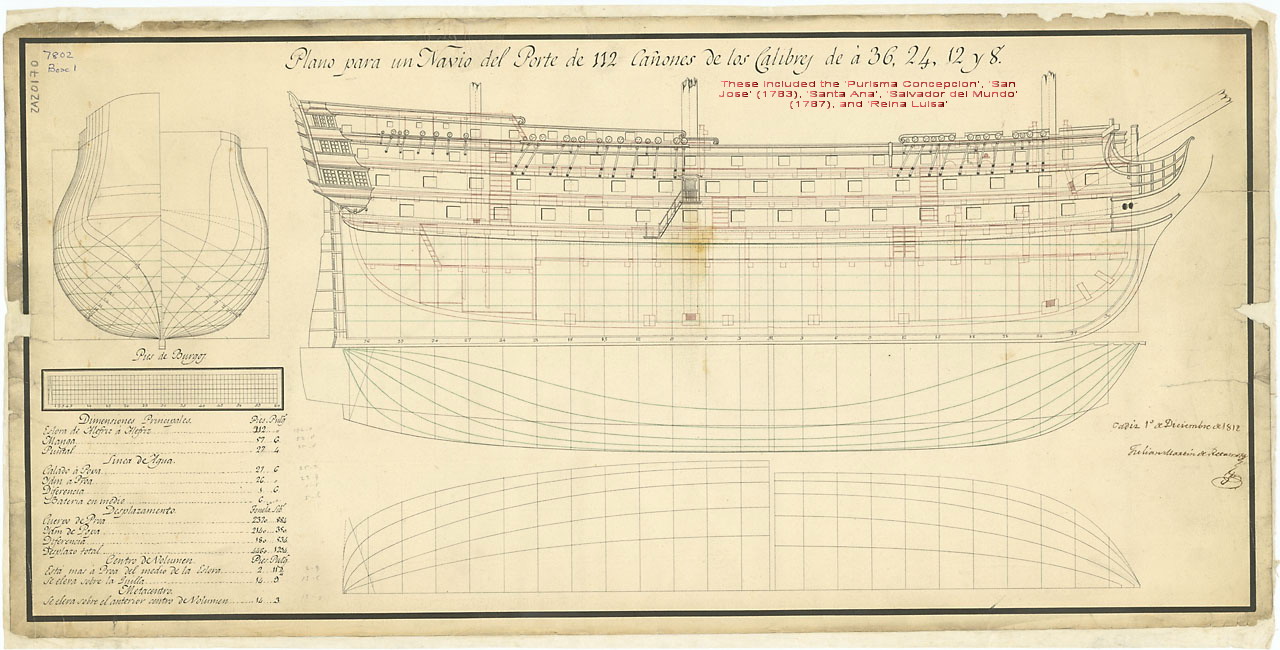 7802
Box 1
ZAZ0170
Plano para un Navio del Porte de 112 Cañones de los Calibres de à 36, 24, 12 y 8.
These included the 'Purisma Concepcion', 'San
Jose' (1783), 'Santa Ana', 'Salvador del Mundo'
(1787), and 'Reina Luisa'
Pies de Burgos
Dimensiones Principales. Pies. Pulg.
Eslora de Alefriz à Alefriz 212 "
Manga 57 6
Puntal 27 4
Linea de Agua.
Calado à Popa 27 6
Idm à Proa 26 "
Diferencia 1 6
Bateria en medio 6
Desplazamento.
Cuerpo de Proa
Idm de Popa
Diferencia
Desplazo total
Centro de Volumen Pies. Pulg.
Está mas à Proa del medio de la Eslora 2
Se eleva sobre la Quilla 14 9
Metacentro.
Se eleva sobre el anterior centro de Volumen 14 3
Cadiz 1º de Diciembre de 1812
Julian Martin de